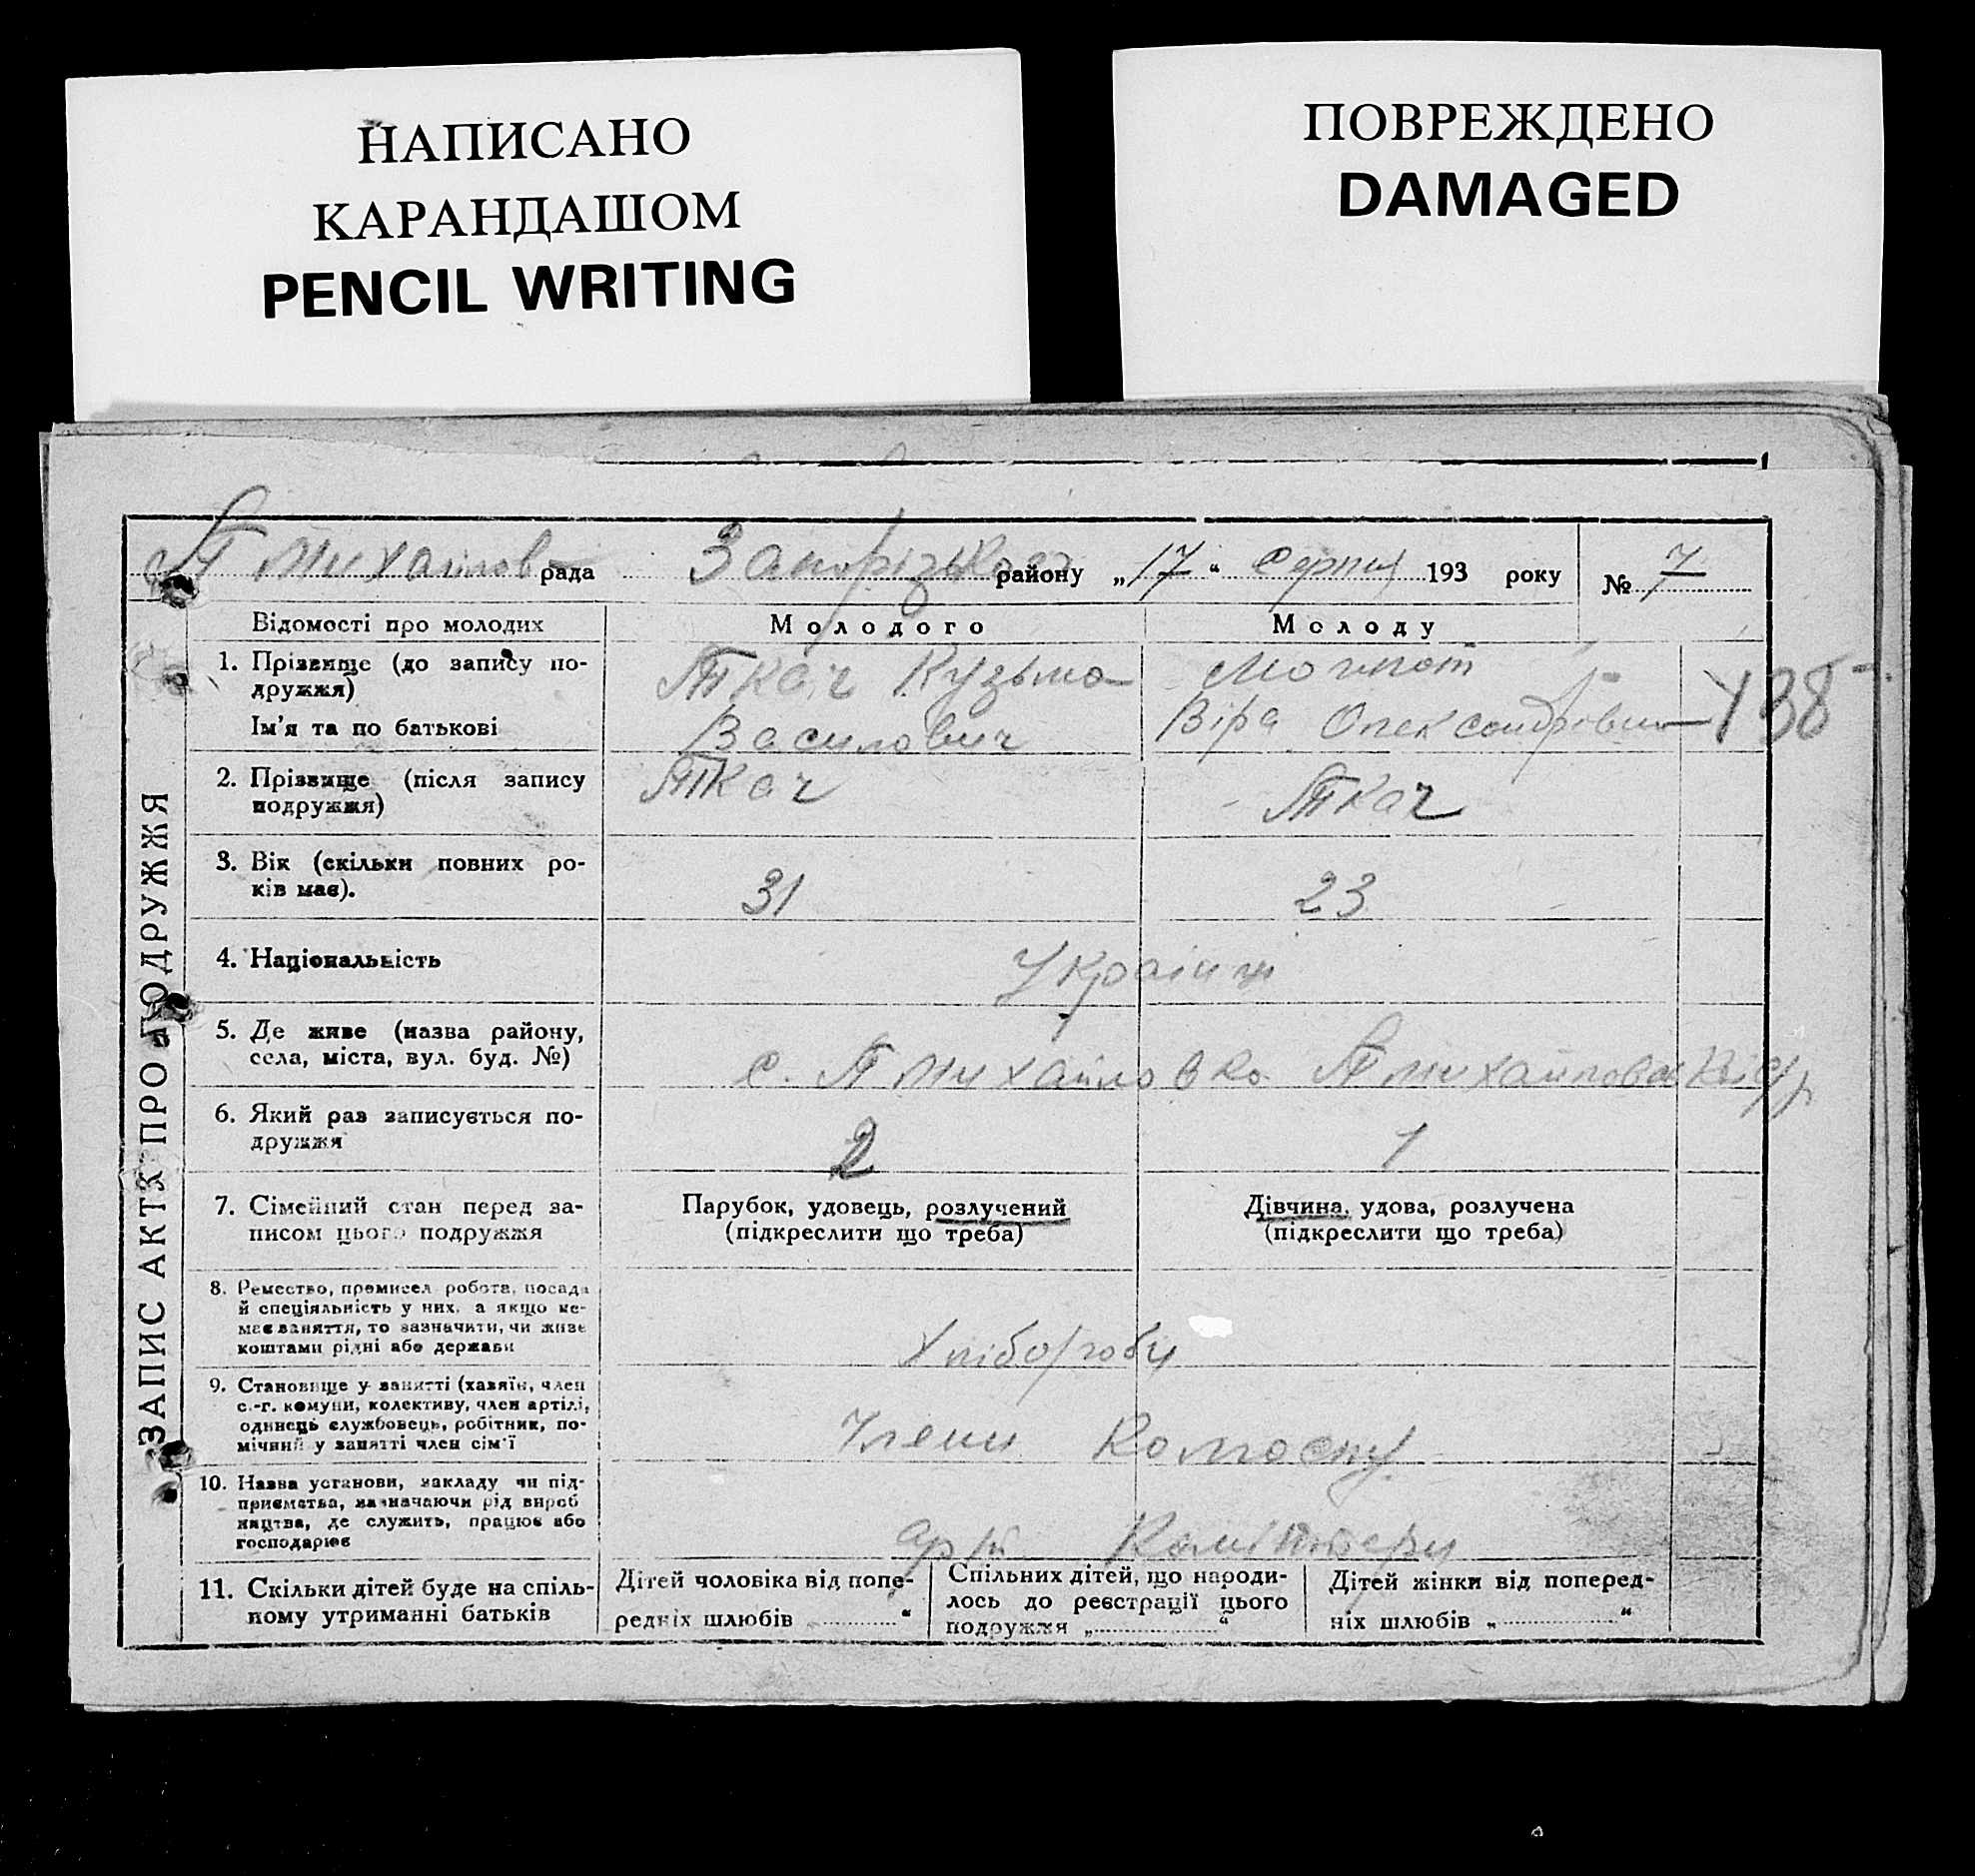 НАПИСАНО
КАРАНДАШОМ
PENCIL WRITING
ПОВРЕЖДЕНО
DAMAGED
П Михайлов рада Запорізького району „17" Серпня 193 року № 7
Відомості про молодих Молодого Молоду
1. Прізвище (до запису по-
дружжя)
Ім'я та по батькові
Ткач Кузьма
Василович
Віра Олександрівна
У 38
2. Прізвище (після запису
подружжя)
Ткач
Ткач
3. Вік (скільки повних ро-
ків має).
31
23
4. Національність
Українці
5. Де живе (назва району,
села, міста, вул. буд. №)
с. П Михайловка П Михайловської с/р
6. Який раз записується по-
дружжя
2
1
7. Сімейний стан перед за-
писом цього подружжя
Парубок, удовець, розлучений
(підкреслити що треба)
Дівчина, удова, розлучена
(підкреслити що треба)
8. Ремество, промисел робота, посада
й спеціяльність у них, а якщо не-
має заняття, то зазначити, чи живе
коштами рідні або держави
Хлібороби
9. Становище у занятті (хазяїн, член
с.-г. комуни, колективу, член артілі,
одинець службовець, робітник, по-
мічний у занятті член сім'ї
Члени Колгоспу
10. Назва установи, закладу чи під-
приємства, зазначаючи рід вироб
ництва, де служить, працює або
господарює
Комінтерн
11. Скільки дітей буде на спіль-
ному утриманні батьків
Дітей чоловіка від попе-
редніх шлюбів "
Спільних дітей, що народи-
лось до реєстрації цього
подружжя „ "
Дітей жінки від поперед-
ніх шлюбів „ "
ЗАПИС АКТА ПРО ПОДРУЖЖЯ